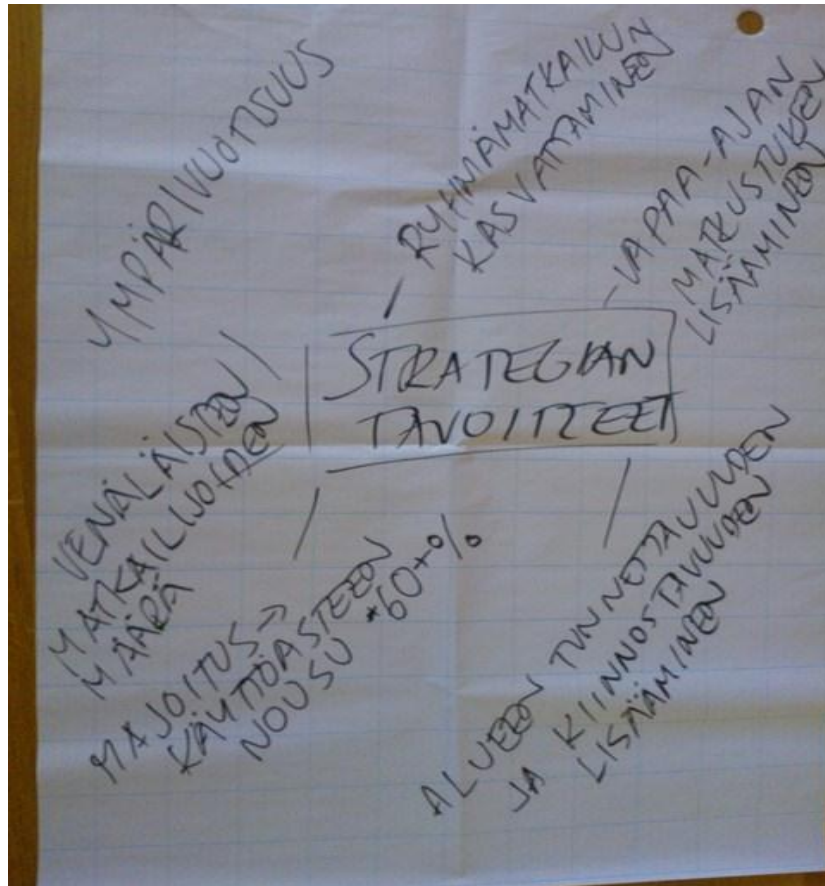 YMPÄRIVUOTISUUS
RYHMÄMATKAILUN
KASVATTAMINEN
-VAPAA-AJAN
MATKUSTUKSEN
LISÄÄMINEN
STRATEGIAN
TAVOITTEET
VENÄLÄISTEN
MATKAILIJOIDEN
MÄÄRÄ
MAJOITUS->
KÄYTTÖASTEEN
NOUSU *60+%
ALUEEN TUNNETTAVUUDEN
JA KIINNOSTAVUUDEN
LISÄÄMINEN